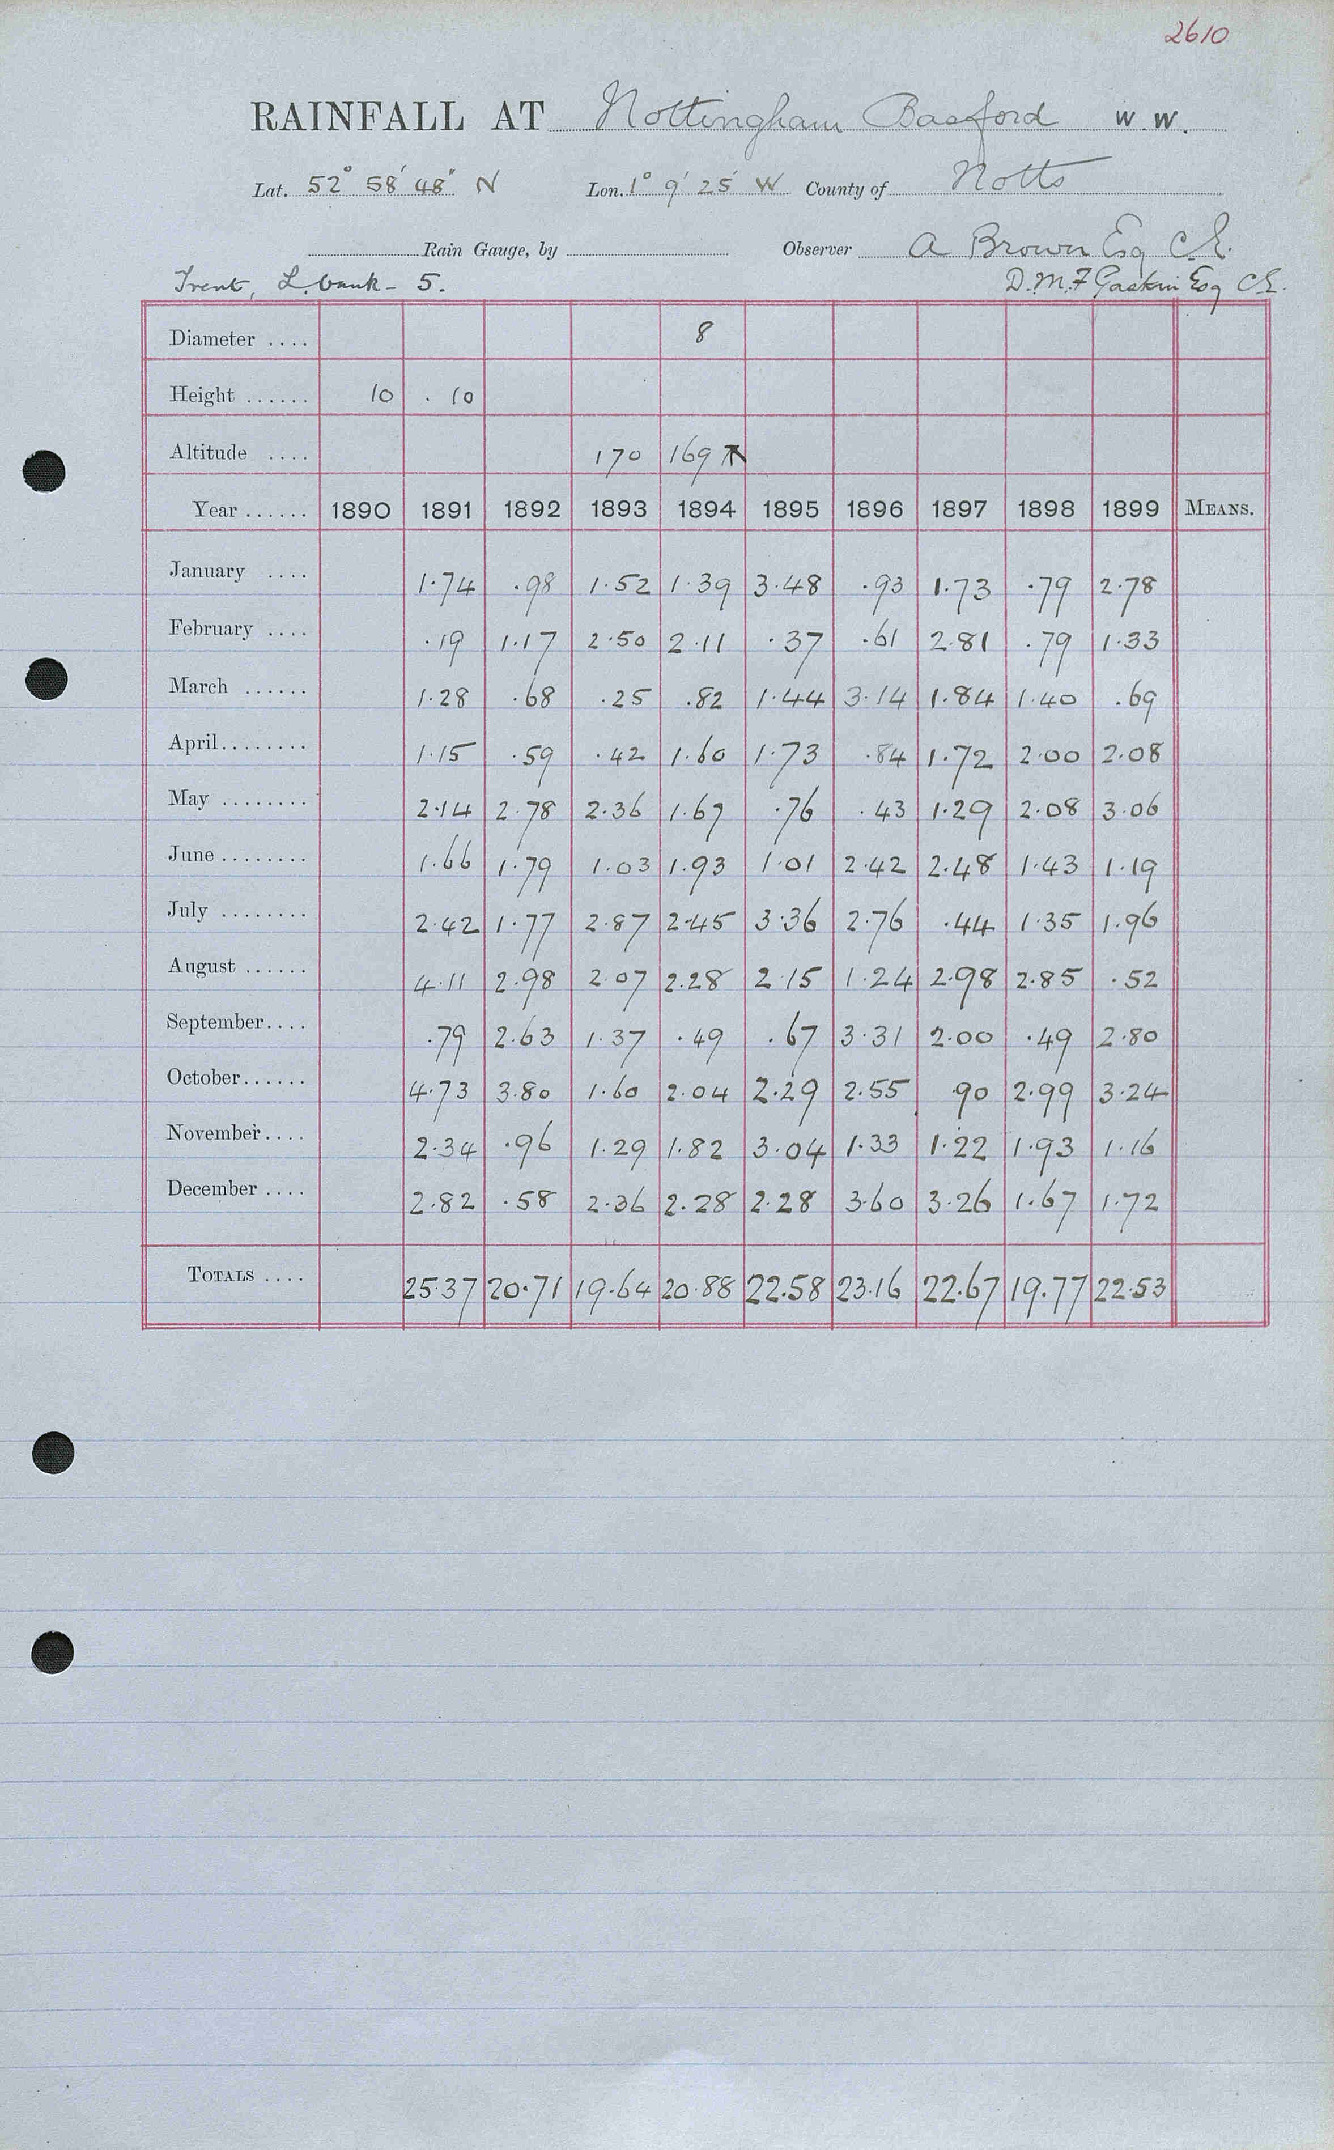 2610
RAINFALL AT Nottingham Basford W.W.
Lat. 52° 58' 48" N Lon. 1° 9' 25' W County of Notts
Rain Gauge, by Observer A Brown Esq C.E.
Trent, L. bank - 5. D.M.F Gaskin Esq C.E.
Diameter .... 8
Height ...... 10 . 10
Altitude .... 170 169
Year ...... 1890 1891 1892 1893 1894 1895 1896 1897 1898 1899 MEANS.
January .... 1.74 .98 1.52 1.39 3.48 .93 1.73 .79 2.78
February .... .19 1.17 2.50 2.11 .37 .61 2.81 .79 1.33
March ...... 1.28 .68 .25 .82 1.44 3.14 1.84 1.40 .69
April ........ 1.15 .59 .42 1.60 1.73 .84 1.72 2.00 2.08
May ........ 2.14 2.78 2.36 1.67 .76 .43 1.29 2.08 3.06
June ........ 1.66 1.79 1.03 1.93 1.01 2.42 2.48 1.43 1.19
July ........ 2.42 1.77 2.87 2.45 3.36 2.76 .44 1.35 1.96
August ...... 4.11 2.98 2.07 2.28 2.15 1.24 2.98 2.85 .52
September .... .79 2.63 1.37 .49 .67 3.31 2.00 .49 2.80
October ...... 4.73 3.80 1.60 2.04 2.29 2.55 .90 2.99 3.24
November .... 2.34 .96 1.29 1.82 3.04 1.33 1.22 1.93 1.16
December .... 2.82 .58 2.36 2.28 2.28 3.60 3.26 1.67 1.72
TOTALS .... 25.37 20.71 19.64 20.88 22.58 23.16 22.67 19.77 22.53